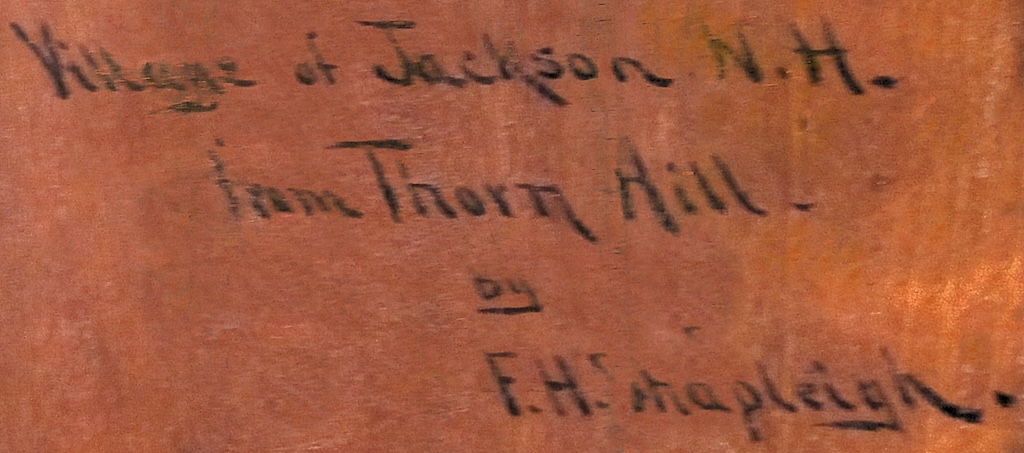 Village of Jackson N.H.
from Thorn Hill.
by
F.H. Shapleigh.